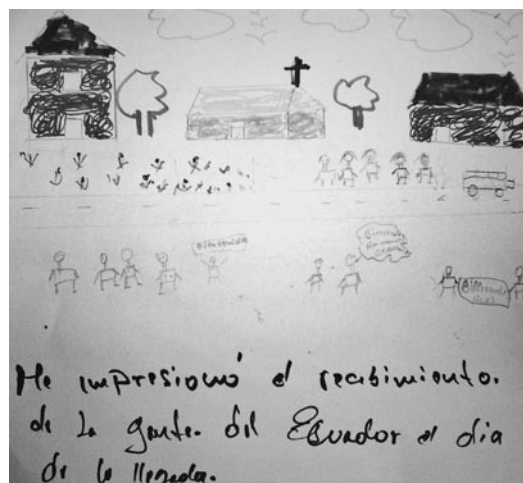 Bienvenidos
Me impresionó el recibimiento.
de la gente. del Ecuador el día
de la llegada.